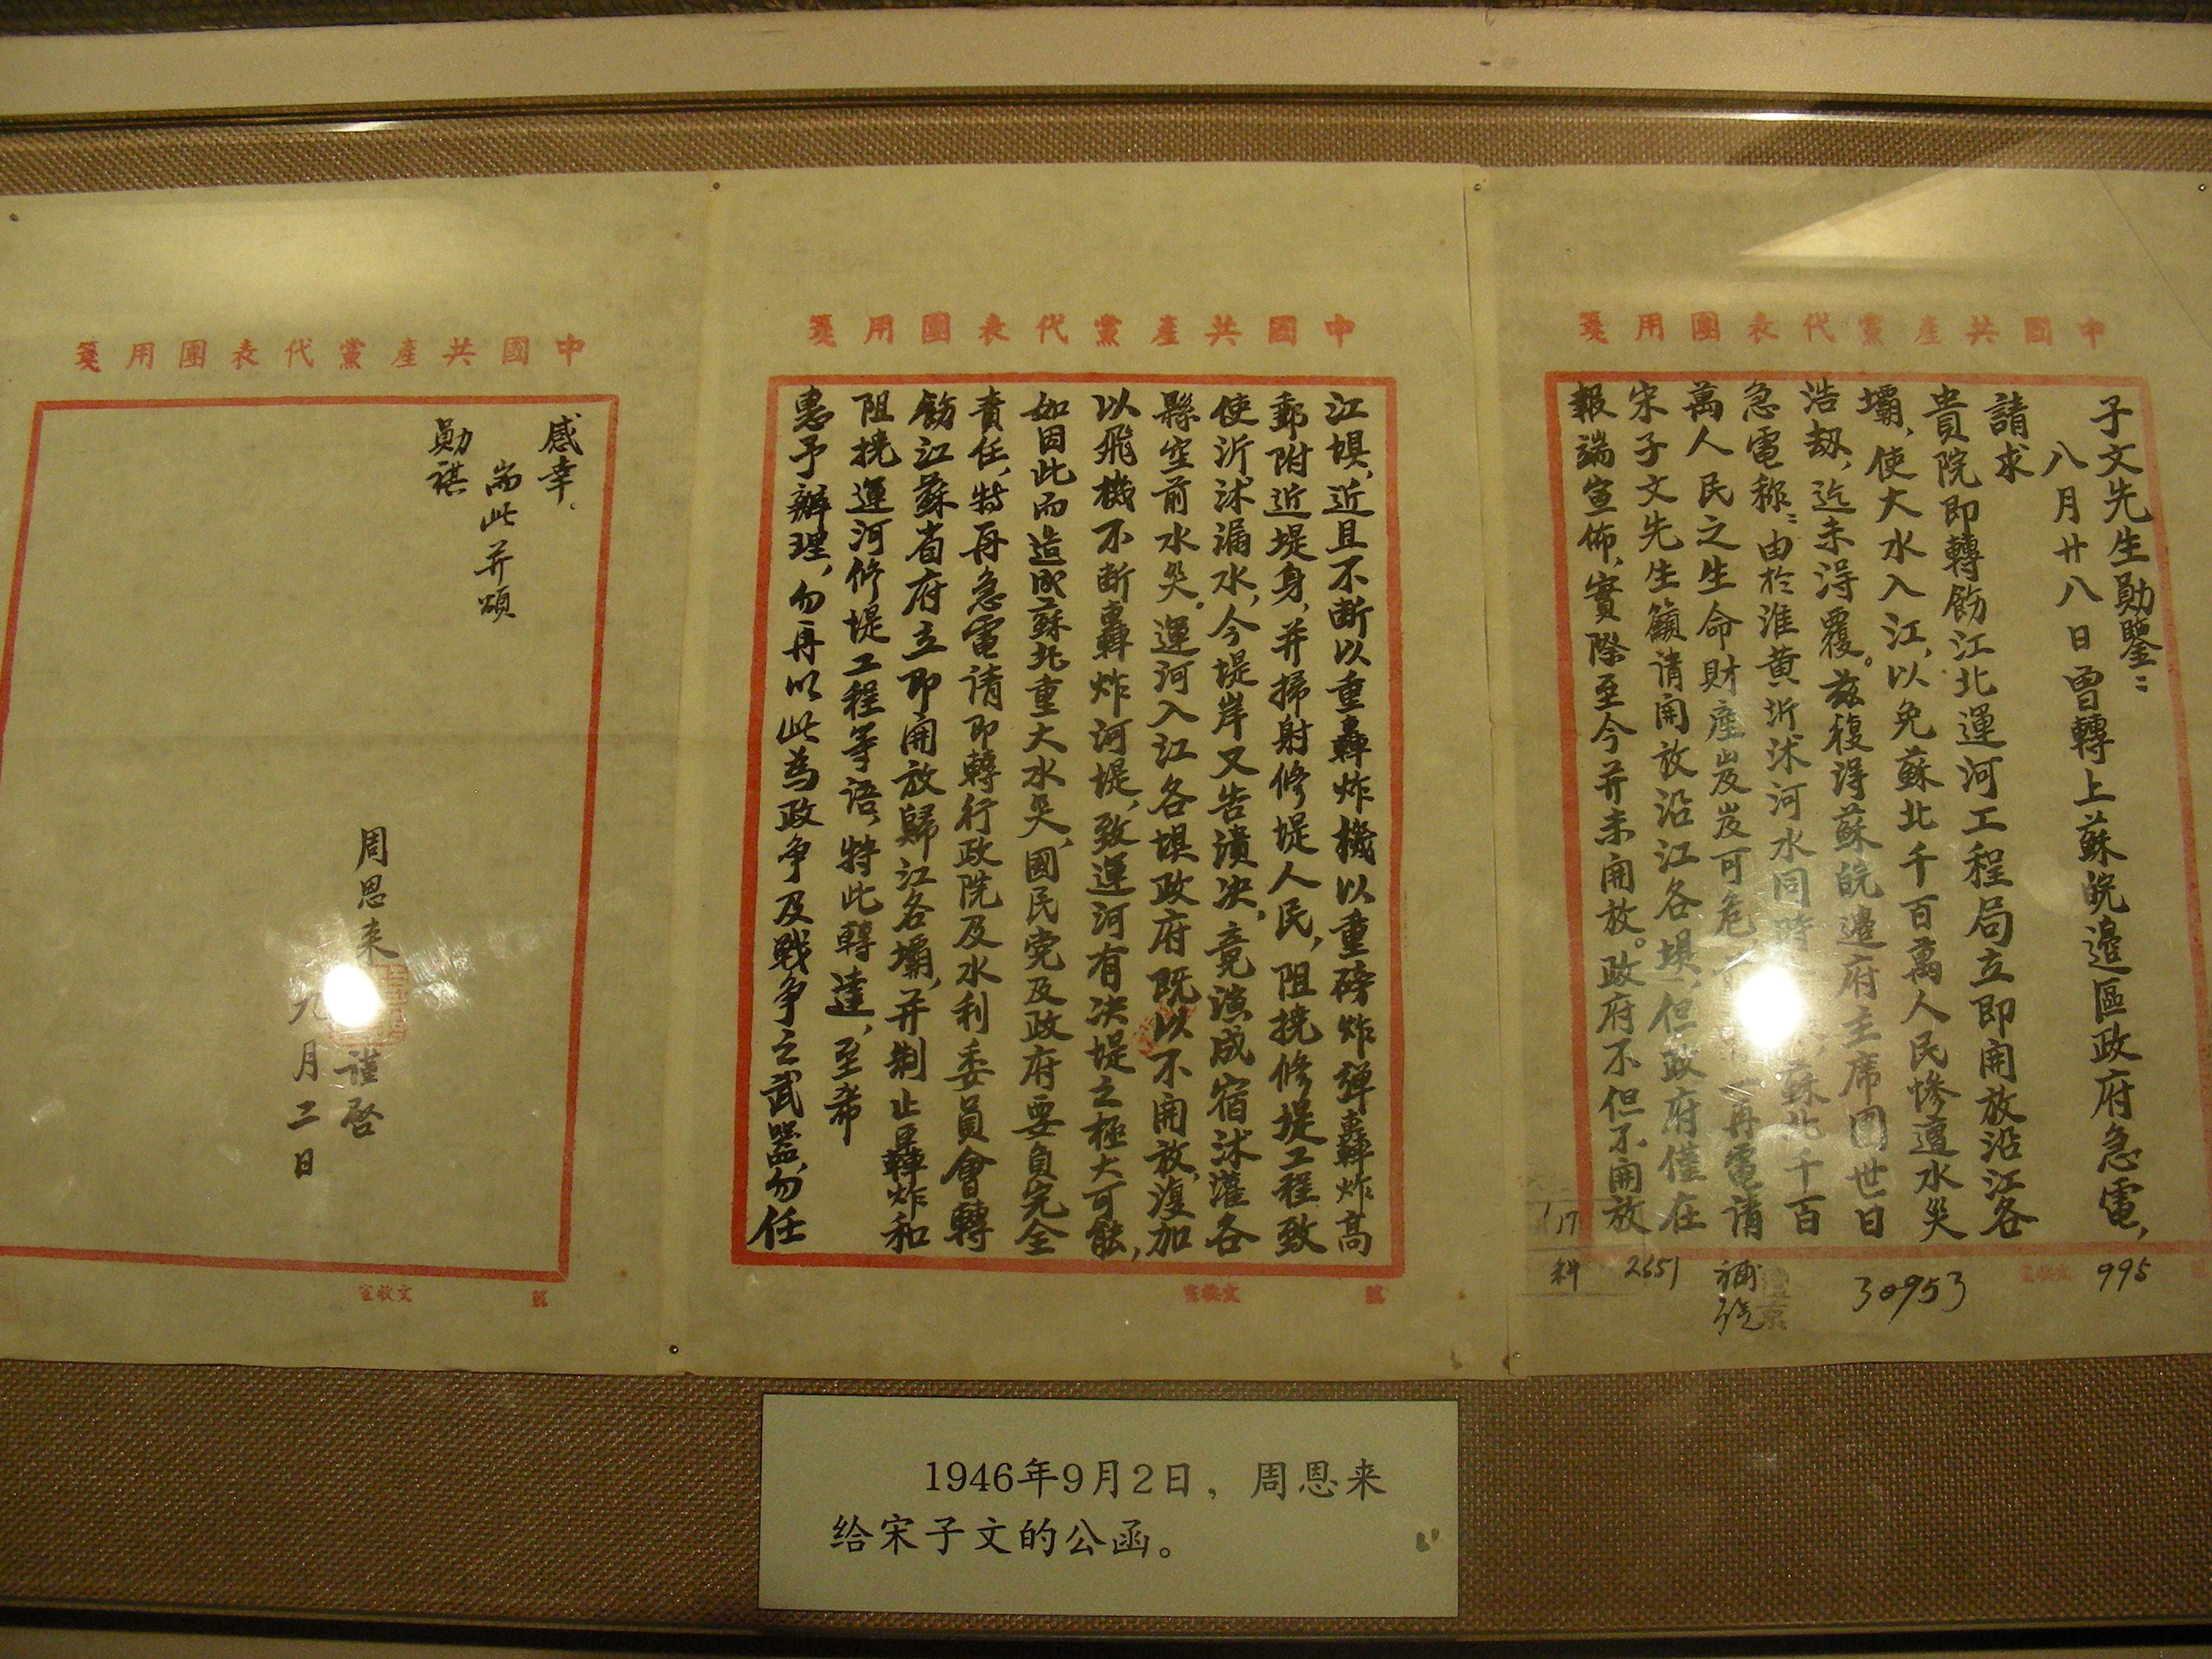 中國共產黨代表團用箋
子文先生勛鑒：
八月廿八日曾轉上蘇皖邊區政府急電，
請求
貴院即轉飭江北運河工程局立即開放沿江各
壩，使大水入江，以免蘇北千百萬人民慘遭水災
浩劫，迄未淂覆。茲複淂蘇皖邊府主席團世日
急電称：由於淮黄沂沭河水同時 蘇北千百
萬人民之生命財產岌岌可危 一再電請
宋子文先生籲请開放沿江各埧，但政府僅在
報端宣佈，實際至今并未開放。政府不但不開放
995
30953
2651
科
117
中國共產黨代表團用箋
江埧，近且不断以重轟炸機以重磅炸弹轟炸高
郵附近堤身，并掃射修堤人民，阻撓修堤工程致
使沂沭漏水，今堤岸又告潰决，竟演成宿沭灌各
縣空前水災。運河入江各埧政府既以不開放，復加
以飛機不断轟炸河堤，致運河有决堤之極大可能，
如因此而造成蘇北重大水災，國民党及政府要負完全
責任，特再急電请即轉行政院及水利委員會轉
飭江蘇省府立即開放歸江各壩，并制止轟炸和
阻撓運河修堤工程等语，特此轉達，至希
惠予辦理，勿再以此為政争及戰争之武噐，勿任
中國共產黨代表團用箋
感幸。
耑此并頌
勛祺
周恩来
謹啓
九月二日
1946年9月2日，周恩来
给宋子文的公函。